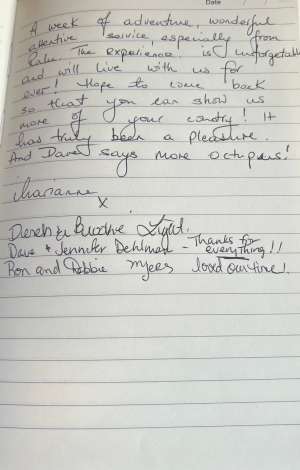 Date
A week of adventure, wonderful
attentive service especially from
The experience is unforgetable
and will live with us for
ever! Hope to come back
so that you can show us
more of your country! It
has truly been a pleasure.
And Dave says more octopus!
Marianne
x
Derek & Light.
Dave & Jennifer Dehlman - Thanks for
everything!!
Ron and Debbie Myers loved our time!